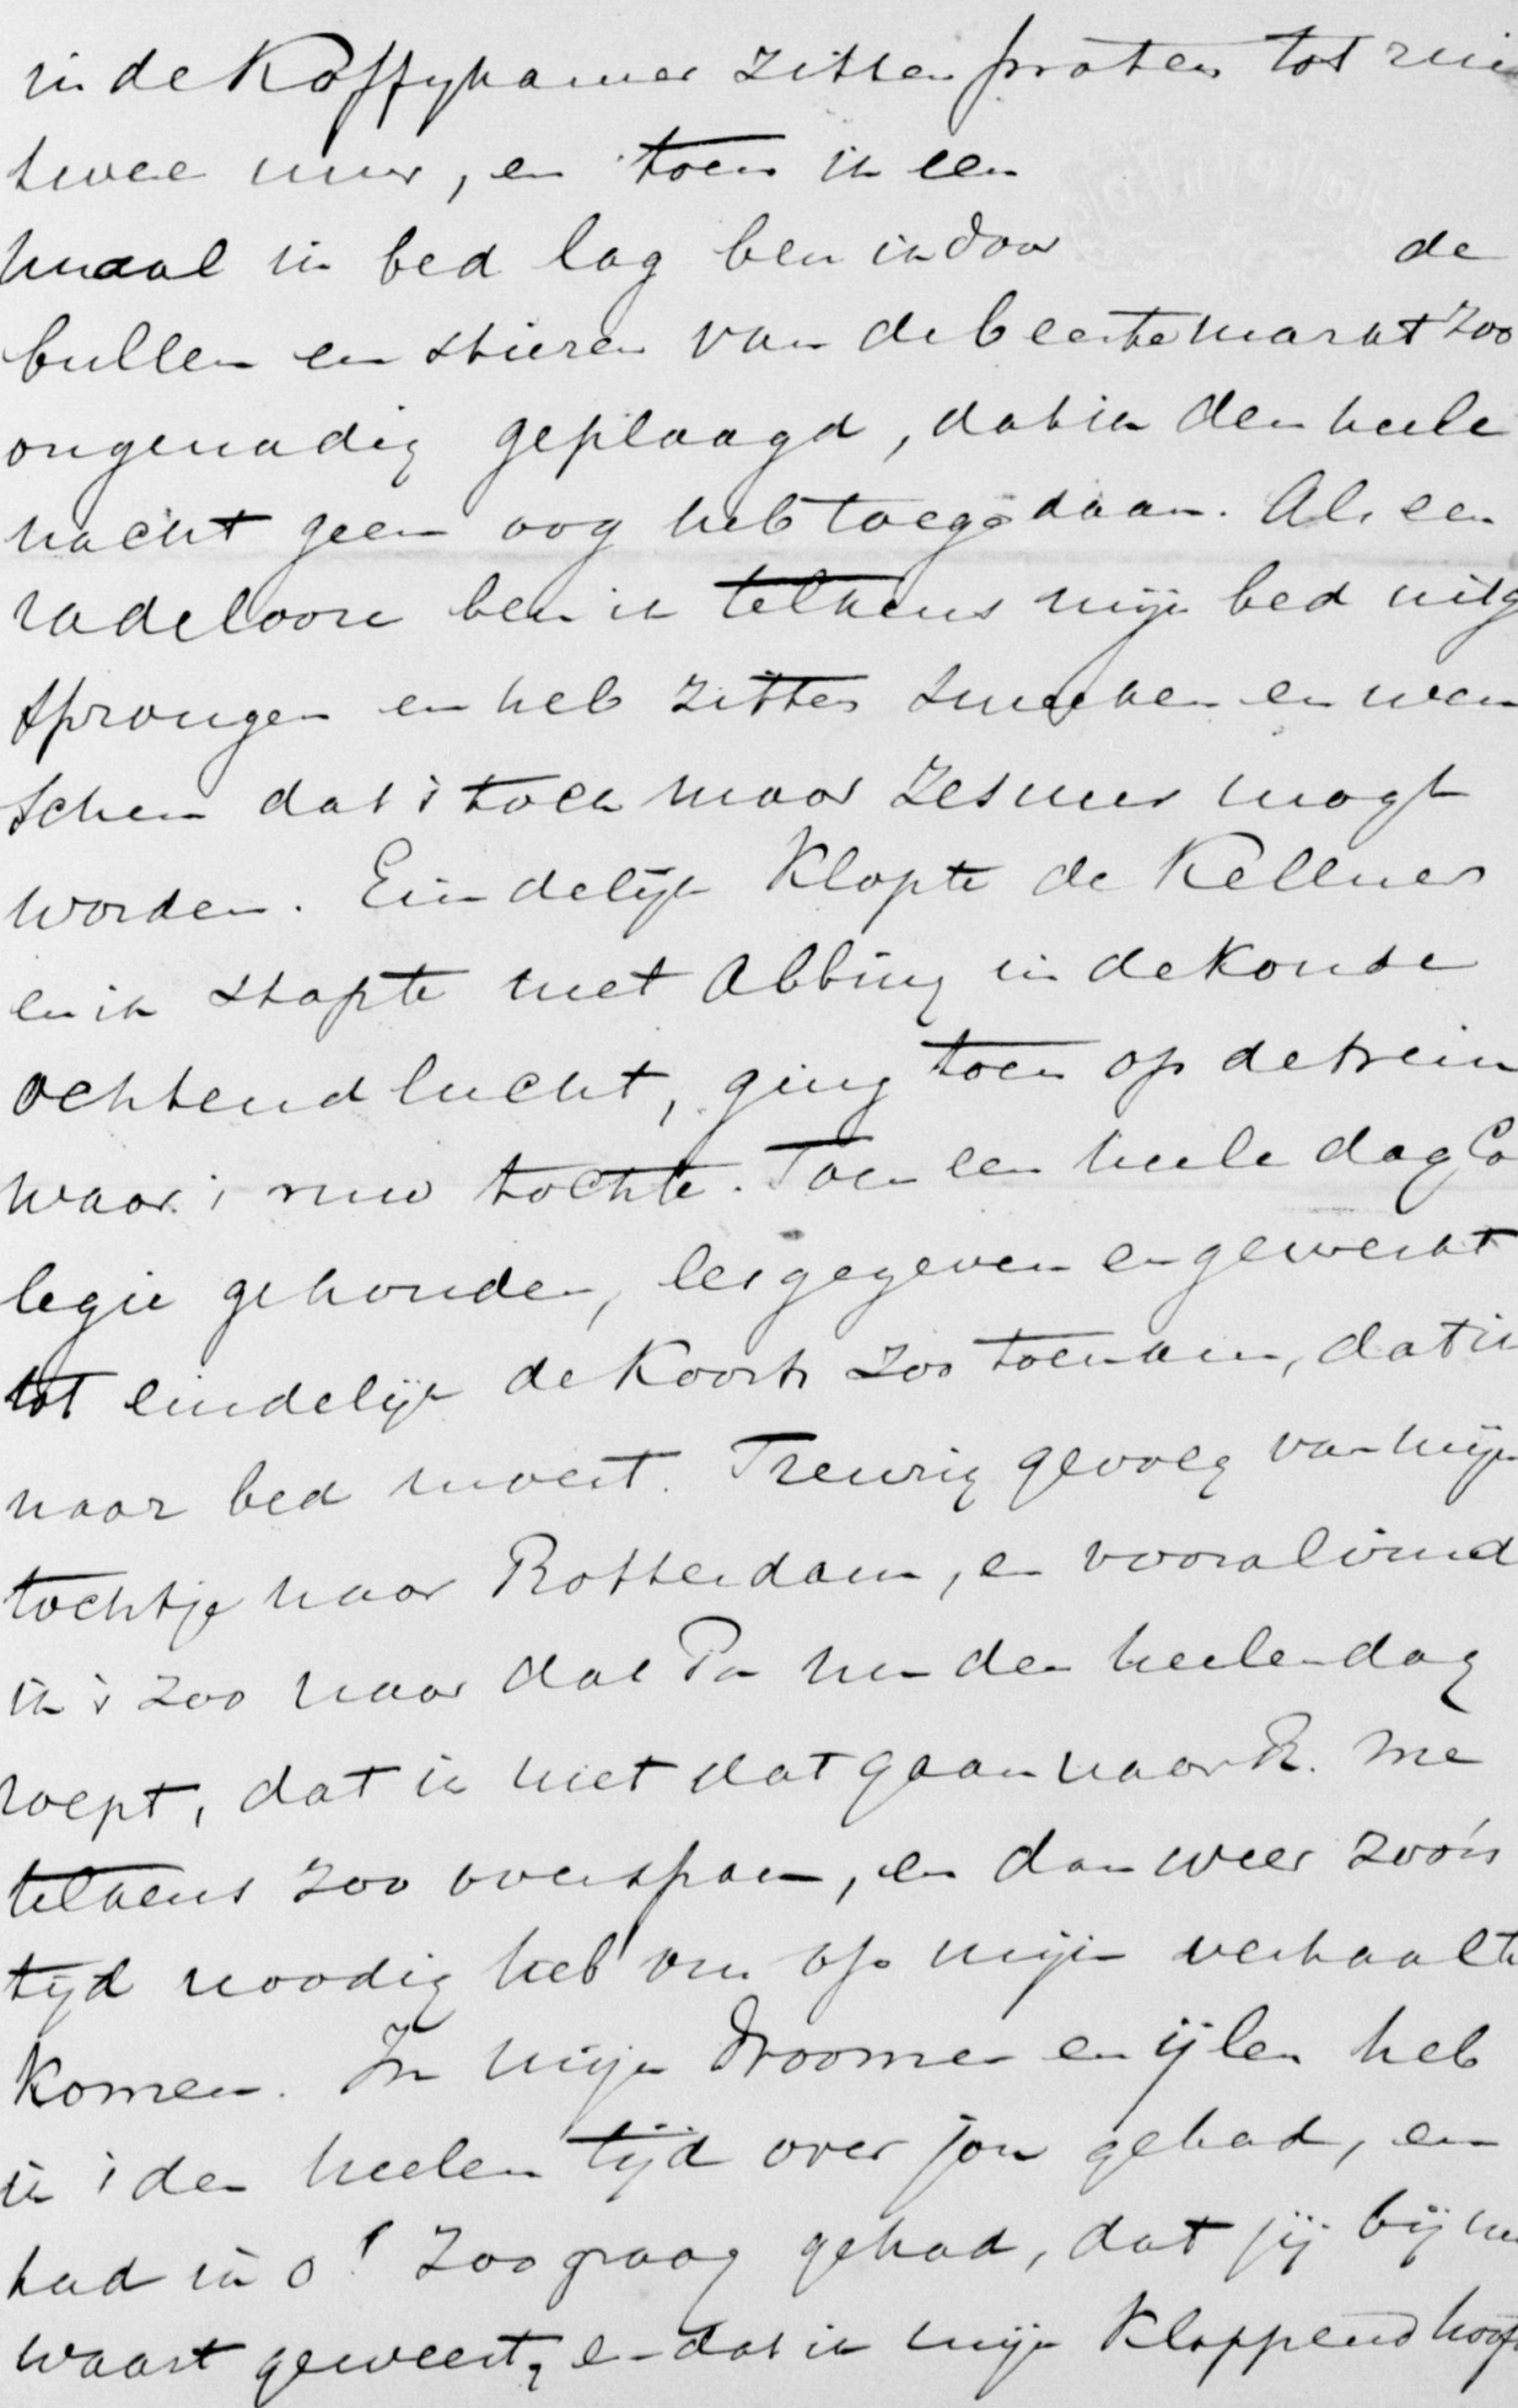 in de Koffykamer zitten praten tot rui
twee uur, en toen ik een
maal in bed lag ben ik door de
bullen en stieren van de beestemarkt zoo
ongenadig geplaagd, dat ik den heele
nacht geen oog heb toegedaan. Als een
radelooze ben ik telkens mijn bed uitg
sprongen en heb zitten smeeken en wen
schen dat 't toch maar zes uur mogt
worden. Eindelijk klopte de Kellner
en ik stapte met Abbing in de koude
ochtendlucht, ging toen op de trein
waar 't ruw tochte. Toen een heele dag Co
legie gehouden, les gegeven en gewerkt
tot eindelijk de Koorts zoo toenam, dat ik
naar bed moest. Treurig gevolg van mijn
tochtje naar Rotterdam, en vooral vind
ik 't zoo naar dat Pa nu den heelen dag
roept, dat ik met dat gaan naar R. me
telkens zoo overspan, en dan weer zoo'n
tijd noodig heb om op mijn verhaal te
komen. In mijn droomen en ijlen heb
ik 't den heelen tijd over jou gehad, en
had ik o! zoo graag gehad, dat jij bij me
waart geweest, en dat ik mijn kloppend hoof